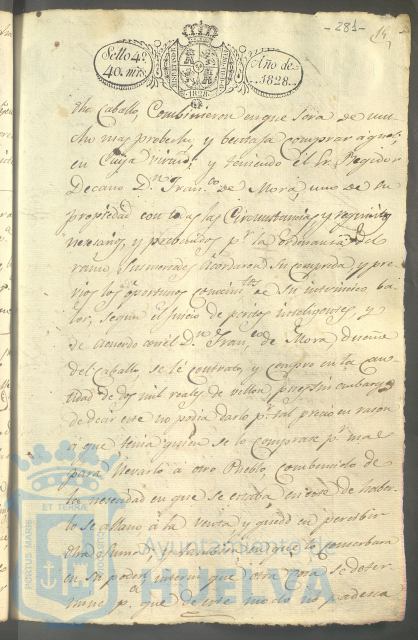 -281-
Sello 4º
40. mrs.
Año de
1828.
1828.
dho Caballo, Combinieron en que sera de mu-
cho mas probecho, y bentaja comprar aquel,
en Cuya virtud, y teniendo el Sr. Regidor
Decano Dn. Franco. de Mora, uno de su
propiedad con todas las Circunstancias y requisitos
necesarios, y prebenidos pr. la ordenanza del
ramo, Sus mercedes Acordaron su compra, y pre-
vios los oportunos conocimtos. de su intrinsico ba-
lor, segun el juicio de peritos inteligentes, y
de acuerdo con el Dn. Franco. de Mora, dueño
del Caballo, se le contrató, y compro en la can-
tidad de dos mil reales de vellon, pues sin embargo
de decir este no podia darlo pr. tal precio en razon
a que tenia quien se lo comprase pr. mas
para llevarlo á otro Pueblo, combencido de
la necesidad en que se estaba, de haber-
lo se allanó á la venta, y quedó en percibir
dha suma, y tambien en que se conserbara
en su poder, interin que otra cosa se deter-
mine pr. que de este modo no padezca
PORTUS MARIS
ET TERRÆ
CUSTODIA
Ayuntamiento de
HUELVA